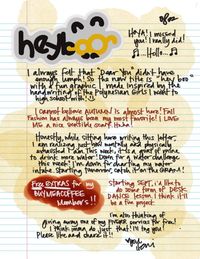 heyboo
08/22
HEYA! I missed
you! I really did!
♫...Hello...♫
I always felt that "Dear You" didn't have
enough humor! So the new title is "hey boo"
with a fun graphic I made inspired by the
handwriting of the Polynesian girls I went to
high school with! :)
I cannot believe AUTUMN is almost here! Fall
Fashion has always been my most favorite! I LOVE
me a nice, incredible scarf! Haha!
Honestly, while sitting here writing this letter,
I am realizing just how mentally and physically
exhausted I am. This week, it is a goal of mine
to drink more water! Down for a water challenge
this week? I'm down for charting my water
intake. Starting tomorrow, catch it on the GRAM!
Free EXTRAS for my
BUYMEACOFFEE
Members!!
Starting SEPT, I'd be a game
to do some form of DESK
DANCE lesson. I think it'll
be a fun project.
I'm also thinking of
giving away one of my services for free!
I think I'm gonna do just that! I'll tag you!
Please like and share it!